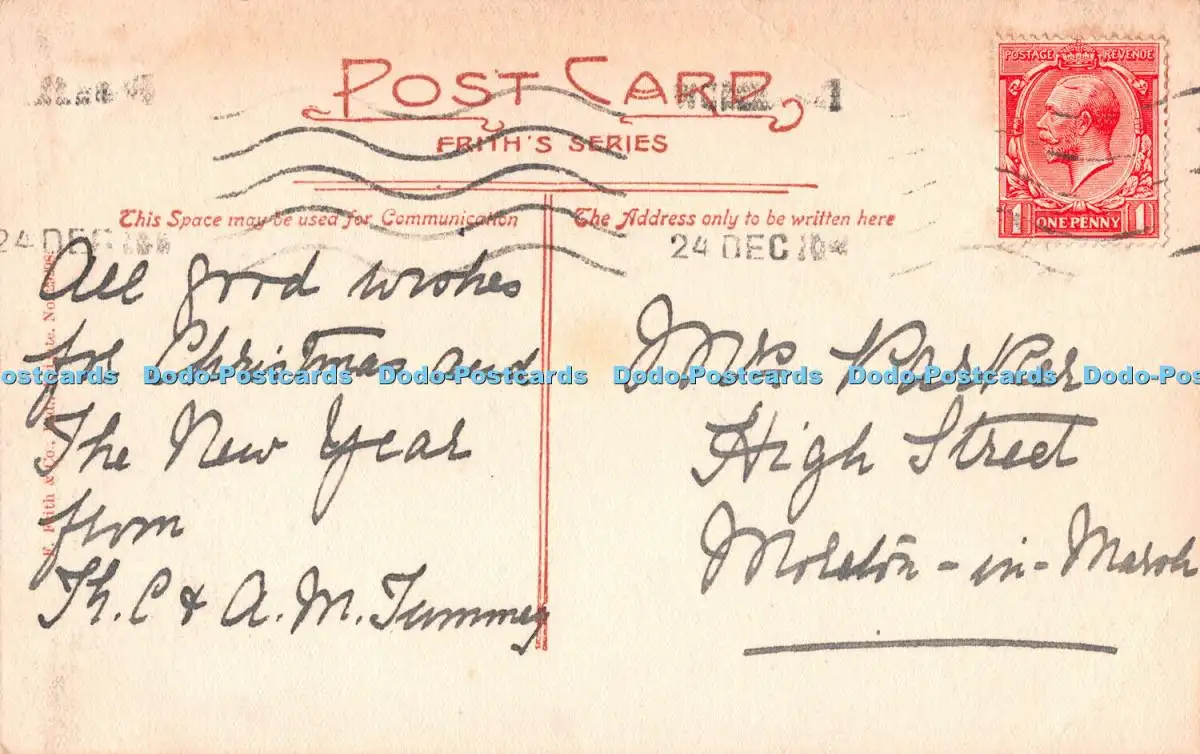 POST CARD
FRITH'S SERIES
POSTAGE REVENUE
1 ONE PENNY 1
This Space may be used for Communication
The Address only to be written here
24 DEC
24 DEC
All good wishes
for Christmas and
The New Year
from
Th. C & A. M. Tummey
Mrs Parker
High Street
Moreton-in-Marsh
F. Frith & Co.,
Dodo-Postcards Dodo-Postcards Dodo-Postcards Dodo-Postcards Dodo-Postcards